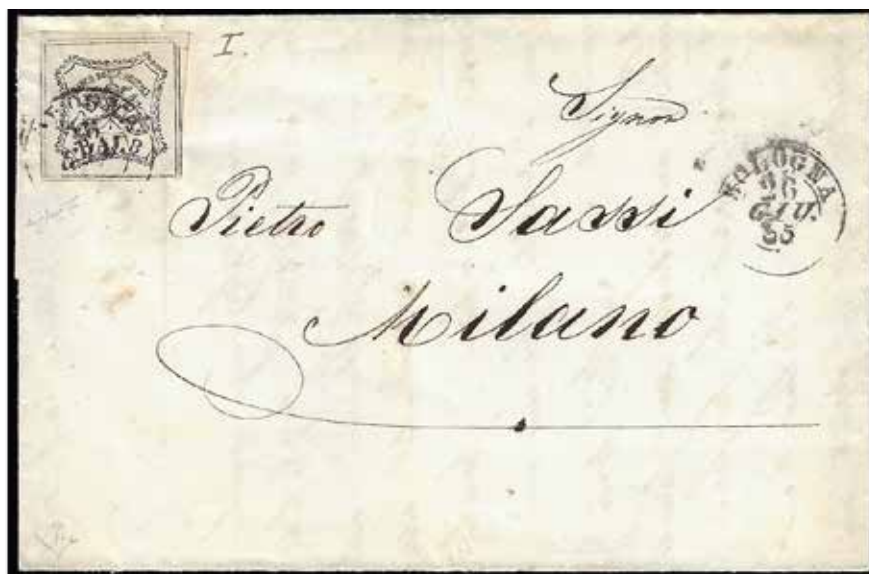 I.
Signor
Pietro Sassi
Milano
BOLOGNA
26
GIU.
55